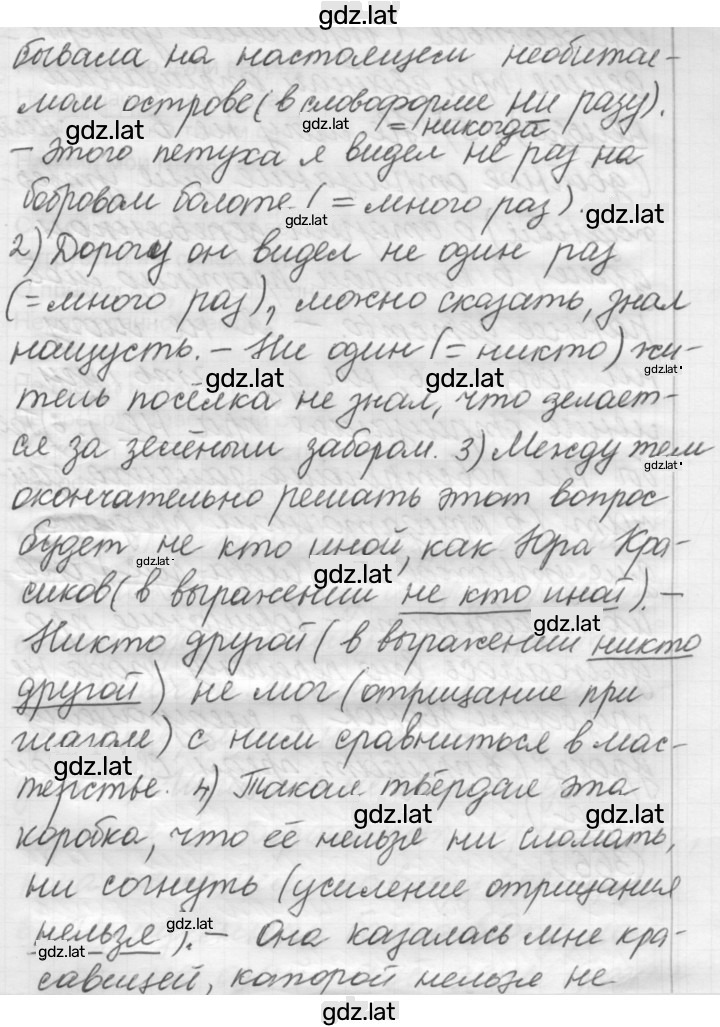 gdz.lat
бывала на настоящем необитае-
мом острове (в словоформе ни разу).
gdz.lat gdz.lat = никогда
– Этого петуха я видел не раз на
бобровом болоте (= много раз).
gdz.lat gdz.lat
2) Дорогу он видел не один раз
(= много раз), можно сказать, знал
наищусть. – Ни один (= никто) жи-
gdz.lat gdz.lat gdz.lat
тель посёлка не знал, что делает-
ся за зелёным забором. 3) Между тем
gdz.lat
окончательно решать этот вопрос
будет не кто иной, как Юра Кра-
gdz.lat gdz.lat
сиков (в выражении не кто иной). –
gdz.lat
Никто другой (в выражении никто
другой) не мог (отрицание при
глаголе) с ним сравниться в мас-
gdz.lat
терстве. 4) Такая твёрдая эта
gdz.lat gdz.lat
коробка, что её нельзя ни сломать,
ни согнуть (усиление отрицания
gdz.lat
нельзя). – Она казалась мне кра-
gdz.lat
савицей, которой нельзя не
gdz.lat